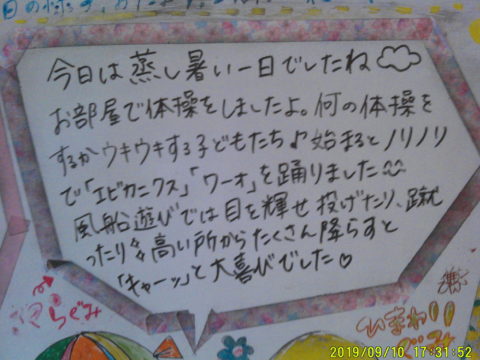 今日は蒸し暑い一日でしたね
お部屋で体操をしましたよ。何の体操を
するかウキウキする子どもたち♪始まるとノリノリ
で「エビカニクス」「ワーオ」を踊りました
風船遊びでは目を輝せ投げたり、蹴
ったり 高い所からたくさん降らすと
「キャーッ」と大喜びでした♡
らぐみ
ひまわり
ぐみ
2019/09/10 17:31:52